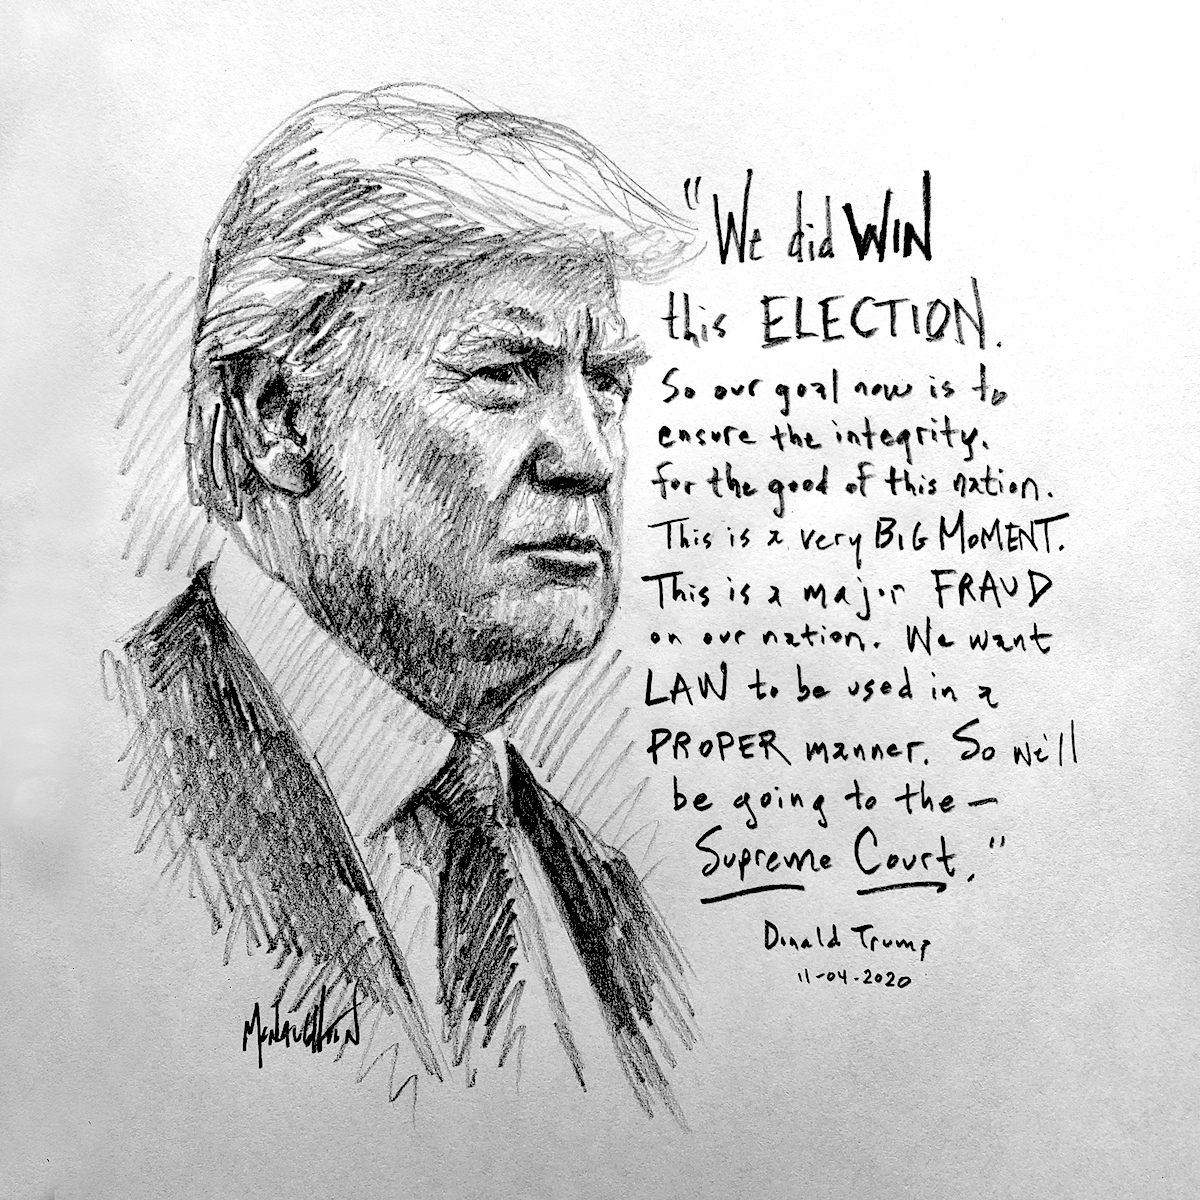 "We did WIN
this ELECTION.
So our goal now is to
ensure the integrity.
for the good of this nation.
This is a very BIG MOMENT.
This is a major FRAUD
on our nation. We want
LAW to be used in a
PROPER manner. So we'll
be going to the —
Supreme Court."
Donald Trump
11-04-2020
McNaughton